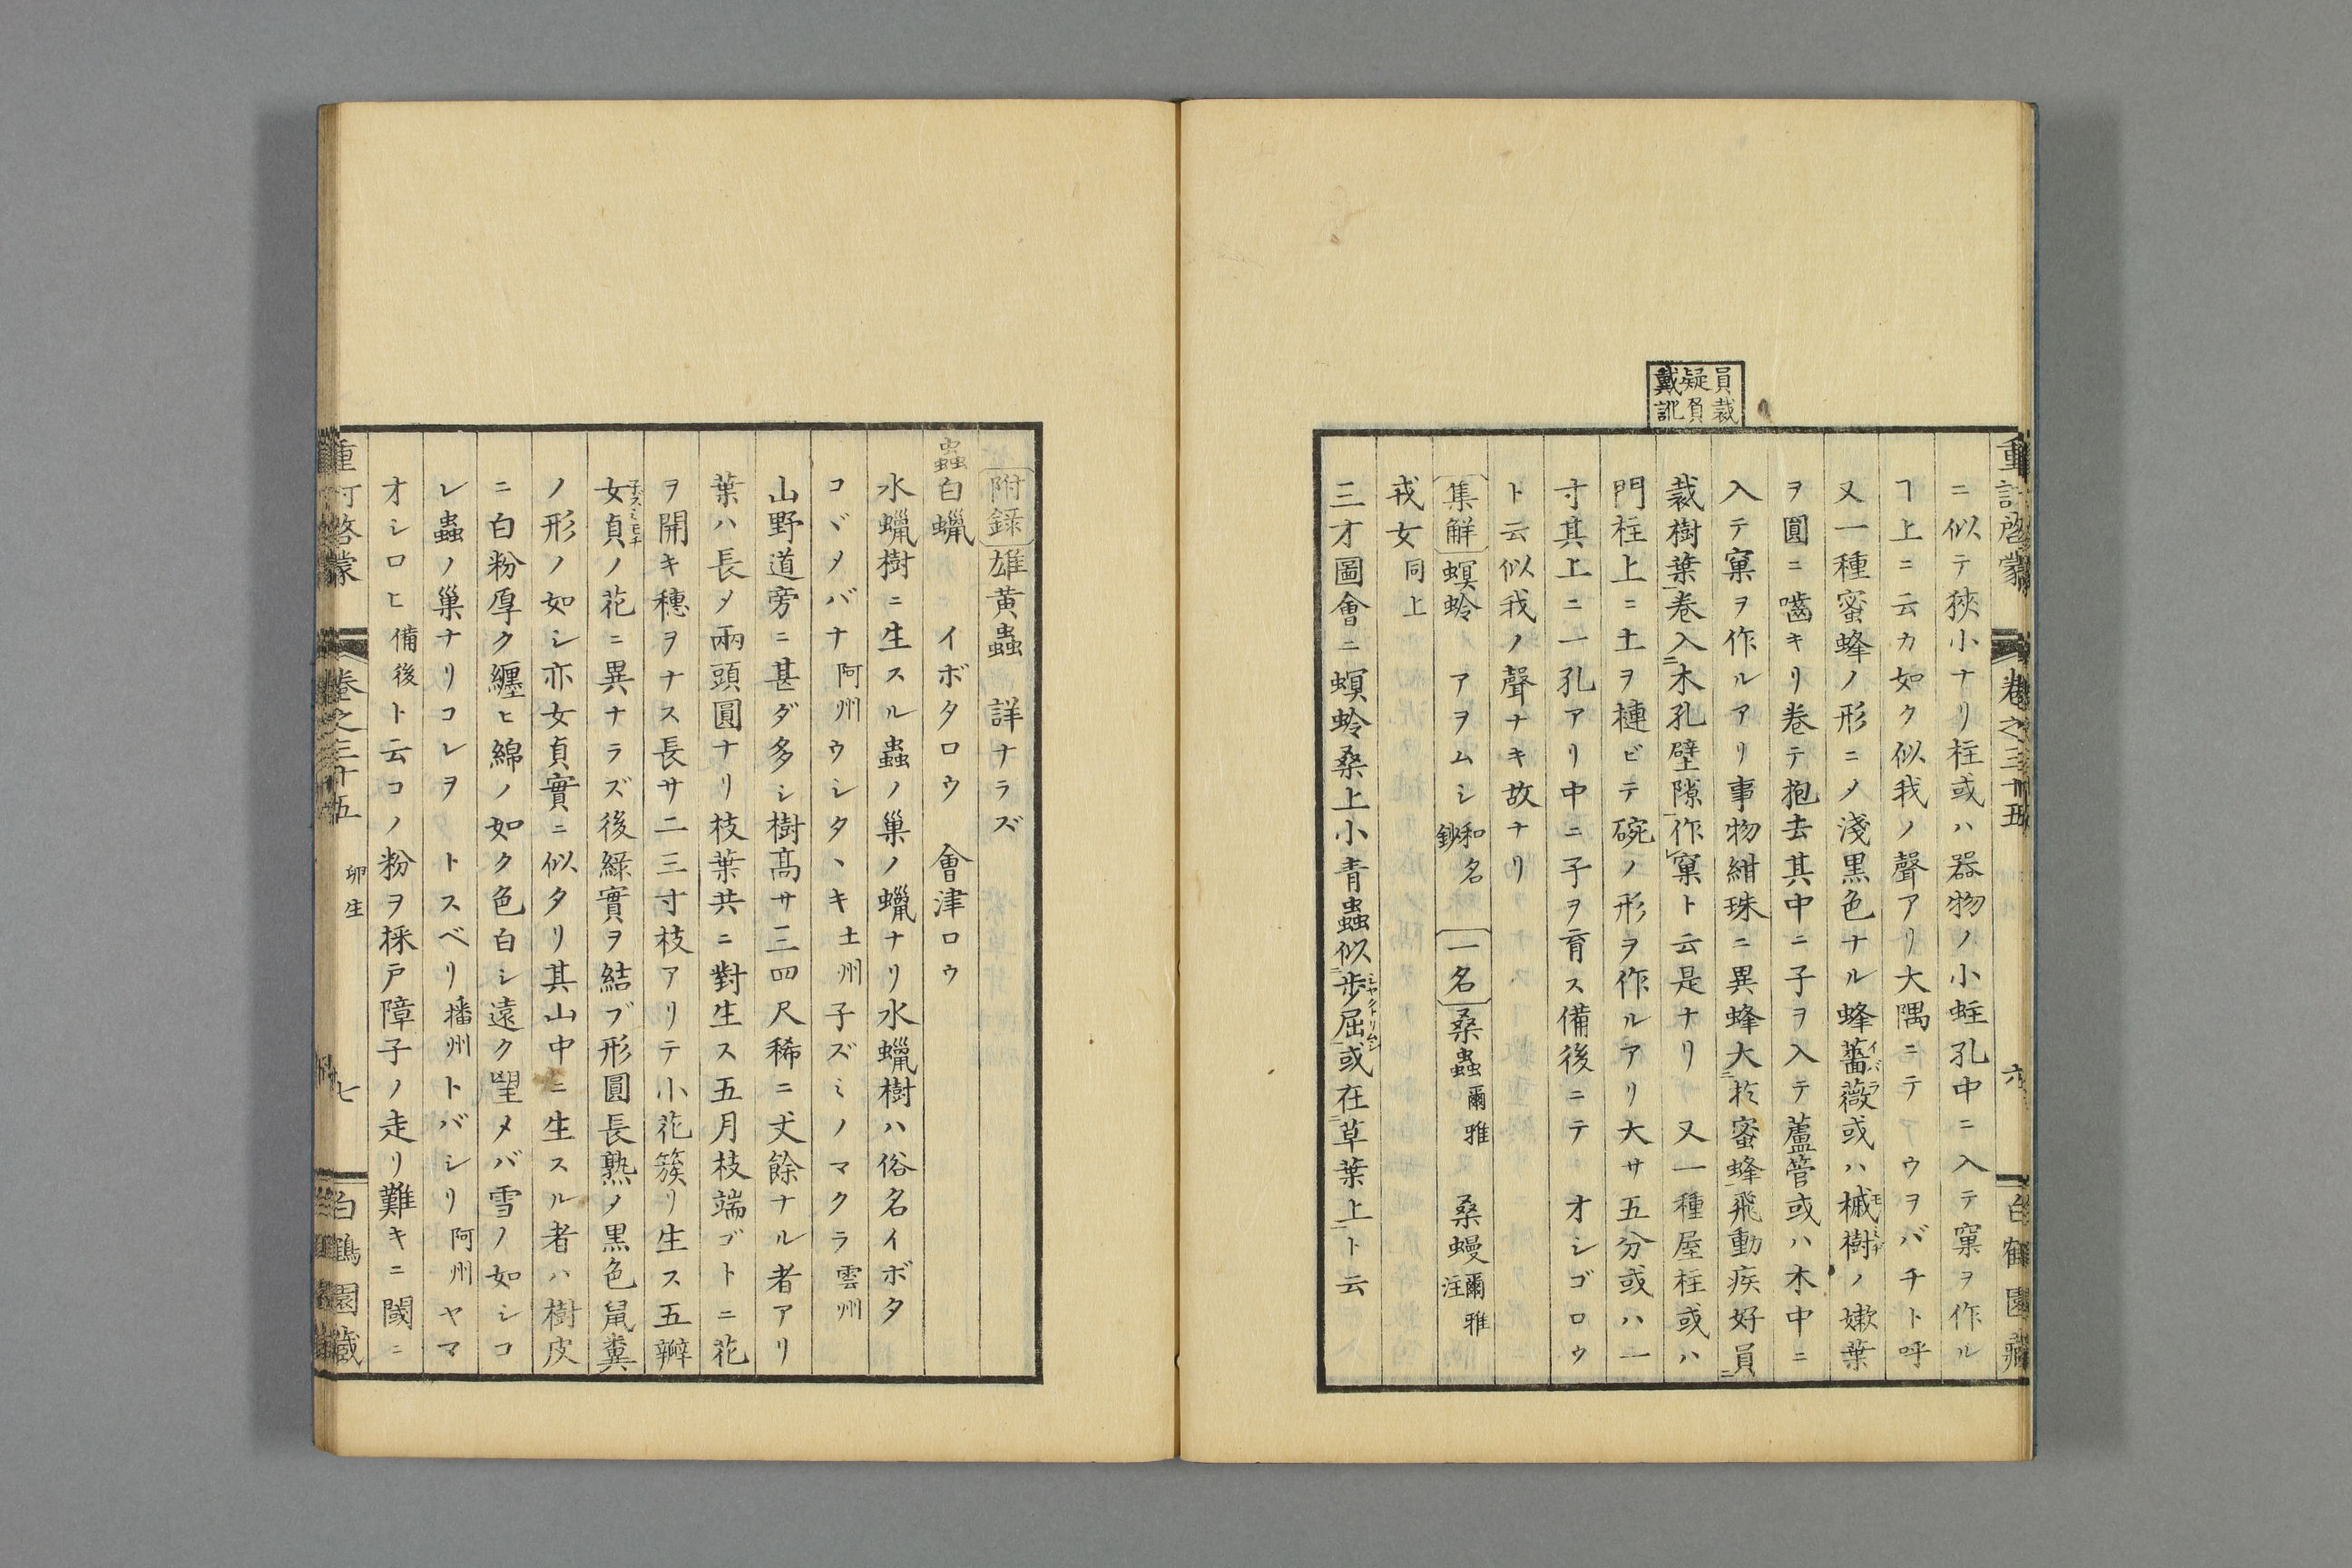 重訂啓蒙 卷之三十五 六 白鶴園藏
ニ似テ狹小ナリ柱或ハ器物ノ小蛀孔中ニ入テ窠ヲ作ル
ヿ上ニ云カ如ク似我ノ聲アリ大隅ニテ ウヲバチト呼
又一種蜜蜂ノ形ニ〆淺黒色ナル蜂薔薇イバラ或ハ槭樹モミヂノ嫩葉
ヲ圓ニ嚙キリ卷テ抱去其中ニ子ヲ入テ蘆管或ハ木中ニ
入テ窠ヲ作ルアリ事物紺珠ニ異蜂大於蜜蜂飛動疾好員
裁樹葉卷入木孔壁隙作窠ト云是ナリ 又一種屋柱或ハ
門柱上ニ土ヲ槤ビテ碗ノ形ヲ作ルアリ大サ五分或ハ一
寸其上ニ一孔アリ中ニ子ヲ育ス備後ニテ オシゴロウ
ト云似我ノ聲ナキ故ナリ
集解 螟蛉 アヲムシ和名鈔 一名 桑蟲爾雅 桑蟃爾雅注
戎女同上
三才圖會ニ螟蛉桑上小青蟲似歩屈シヤクトリムシ或在草葉上ト云
員裁
疑員
戴訛
附錄 雄黄蟲 詳ナラズ
蟲白蠟 イボタロウ 會津ロウ
水蠟樹ニ生スル蟲ノ巢ノ蠟ナリ水蠟樹ハ俗名イボタ
コヾメバナ阿州ウシタヽキ土州子ズミノマクラ雲州
山野道旁ニ甚ダ多シ樹髙サ三四尺稀ニ丈餘ナル者アリ
葉ハ長〆兩頭圓ナリ枝葉共ニ對生ス五月枝端ゴトニ花
ヲ開キ穗ヲナス長サ二三寸枝アリテ小花簇リ生ス五瓣
女貞子ズミモチノ花ニ異ナラズ後綠實ヲ結ブ形圓長熟〆黒色鼠糞
ノ形ノ如シ亦女貞實ニ似タリ其山中ニ生スル者ハ樹皮
ニ白粉厚ク纏ヒ綿ノ如ク色白シ遠ク望メバ雪ノ如シコ
レ蟲ノ巢ナリコレヲ トスベリ播州トバシリ阿州ヤマ
オシロヒ備後ト云コノ粉ヲ採戸障子ノ走リ難キニ閾ニ
重訂啓蒙 卷之三十五 卵生 七 白鶴園藏